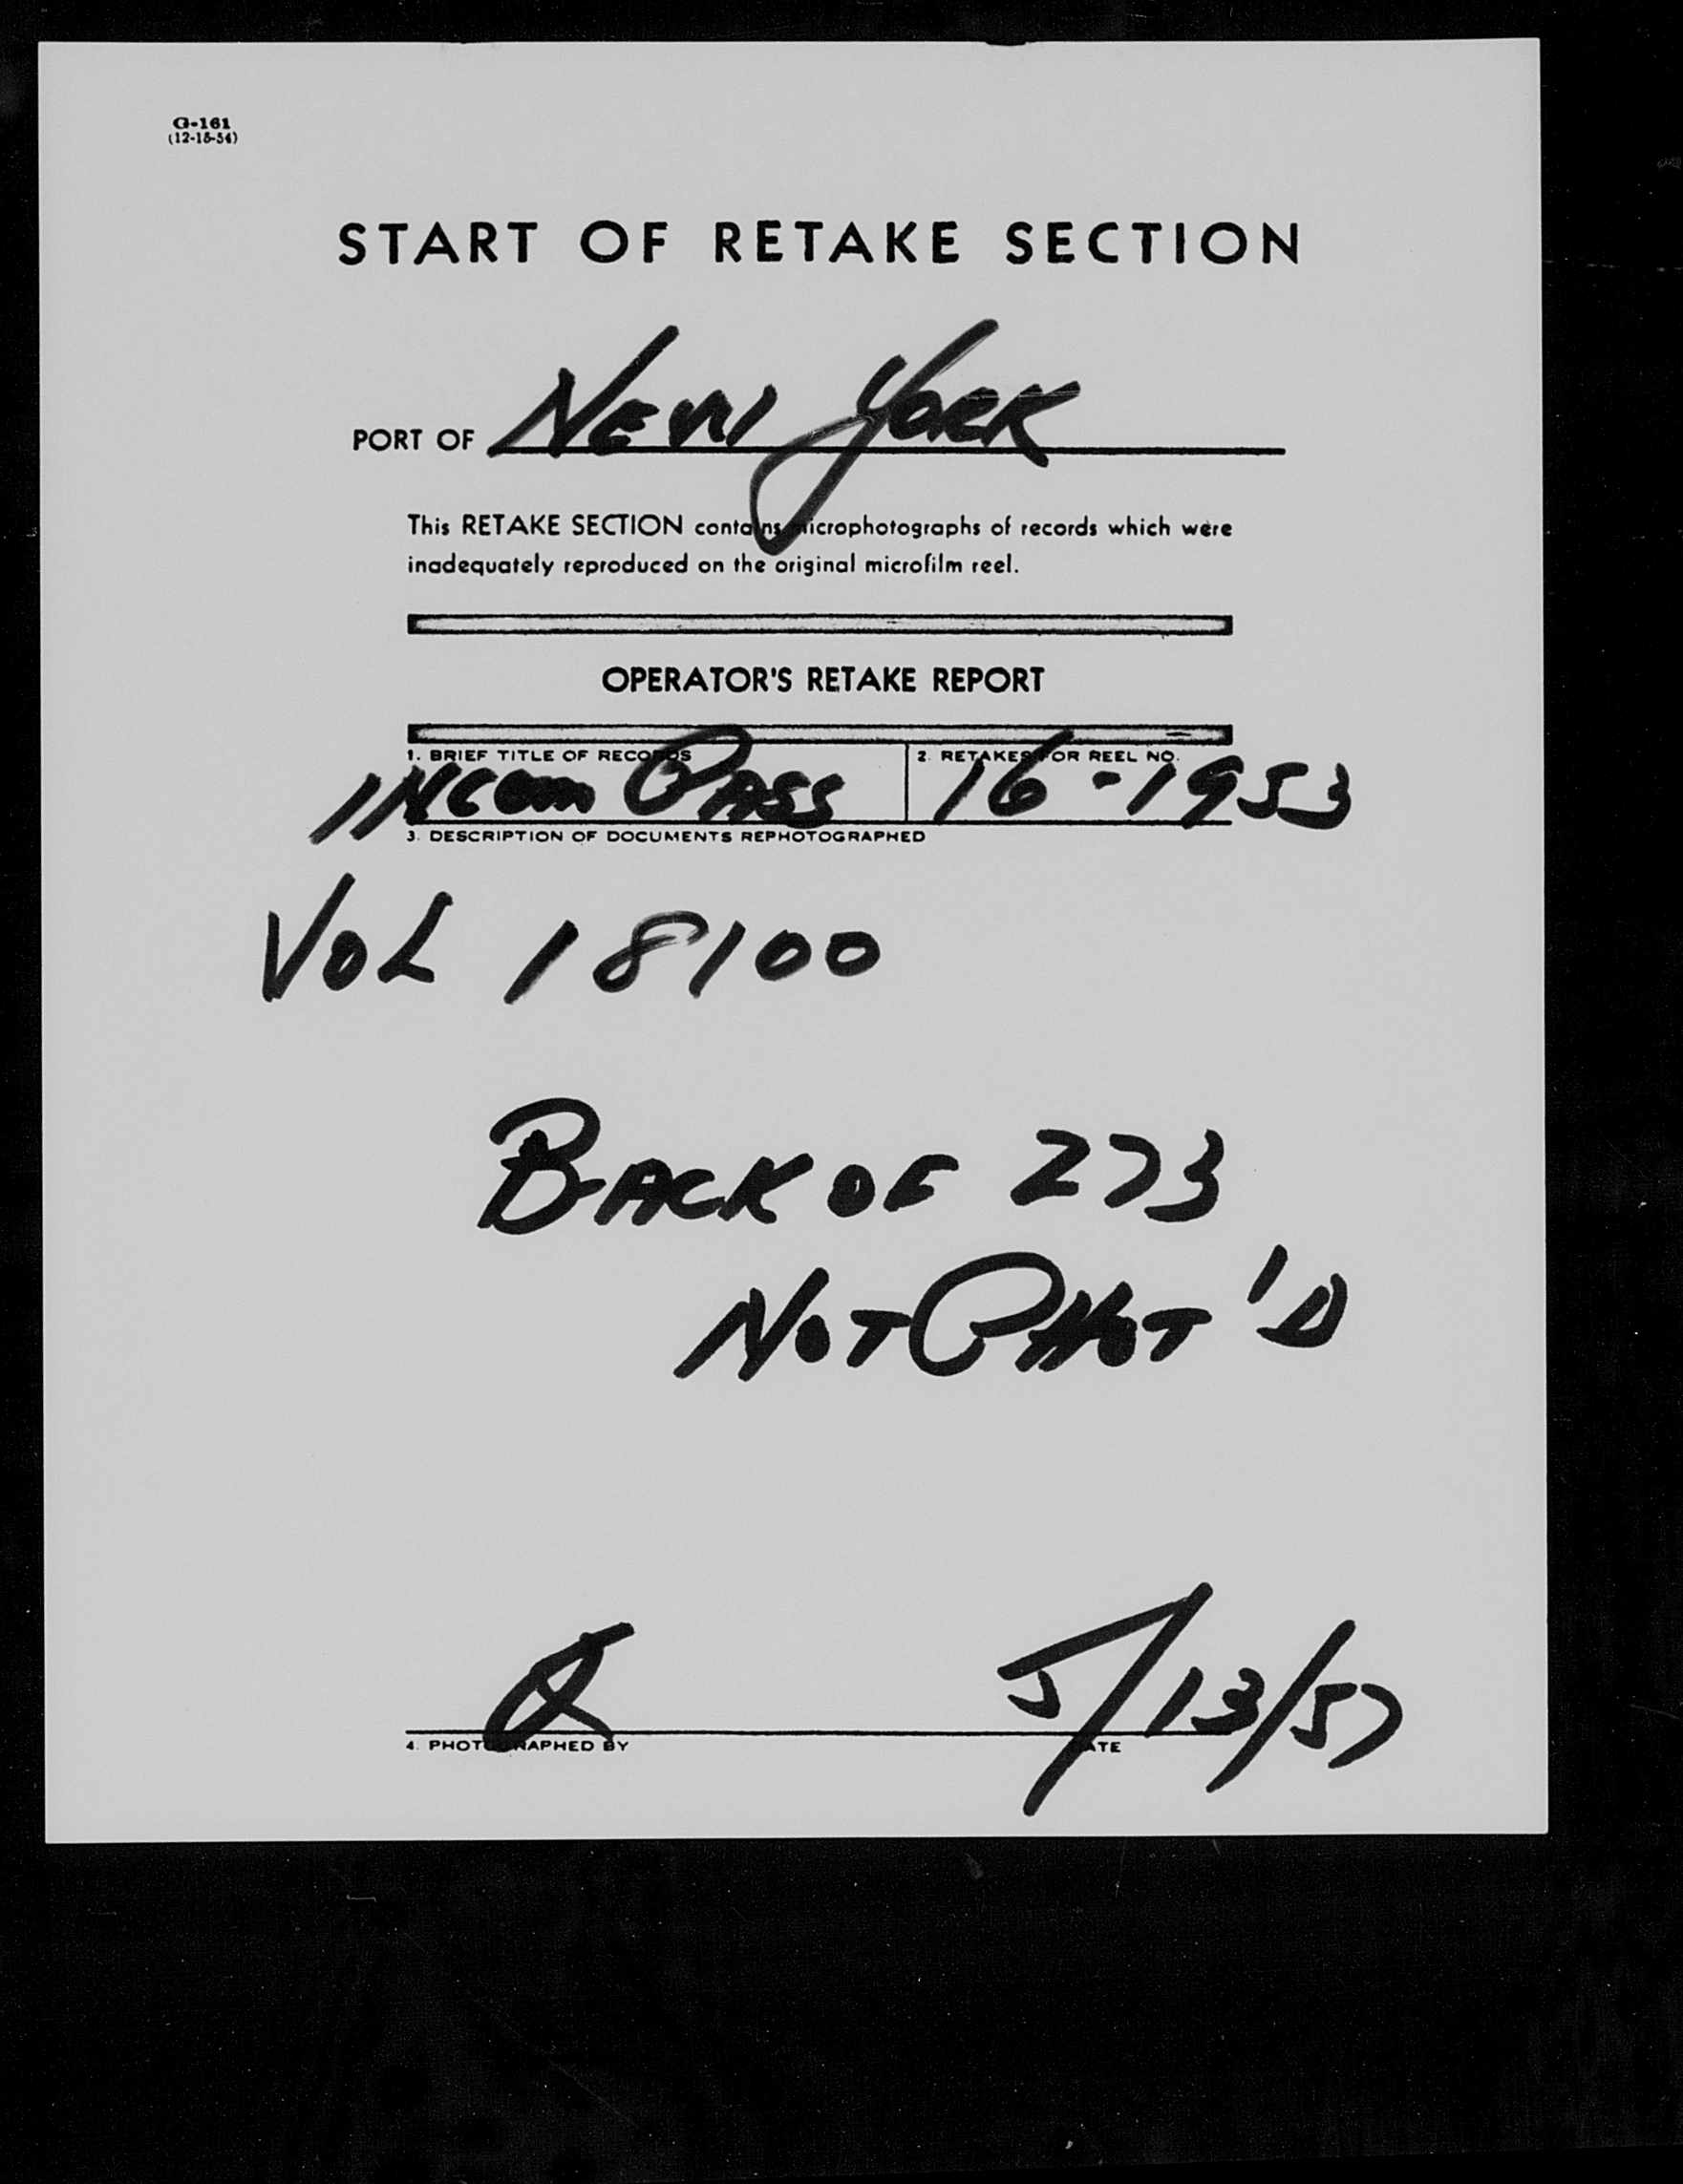 G-161
(12-15-54)
START OF RETAKE SECTION
PORT OF NEW YORK
This RETAKE SECTION contains microphotographs of records which were
inadequately reproduced on the original microfilm reel.
OPERATOR'S RETAKE REPORT
1. BRIEF TITLE OF RECORDS 2. RETAKES FOR REEL NO.
INCOM PASS 16-1953
3. DESCRIPTION OF DOCUMENTS REPHOTOGRAPHED
VOL 18100
BACK OF 273
NOT PHOT'D
5/13/57
4. PHOTOGRAPHED BY DATE